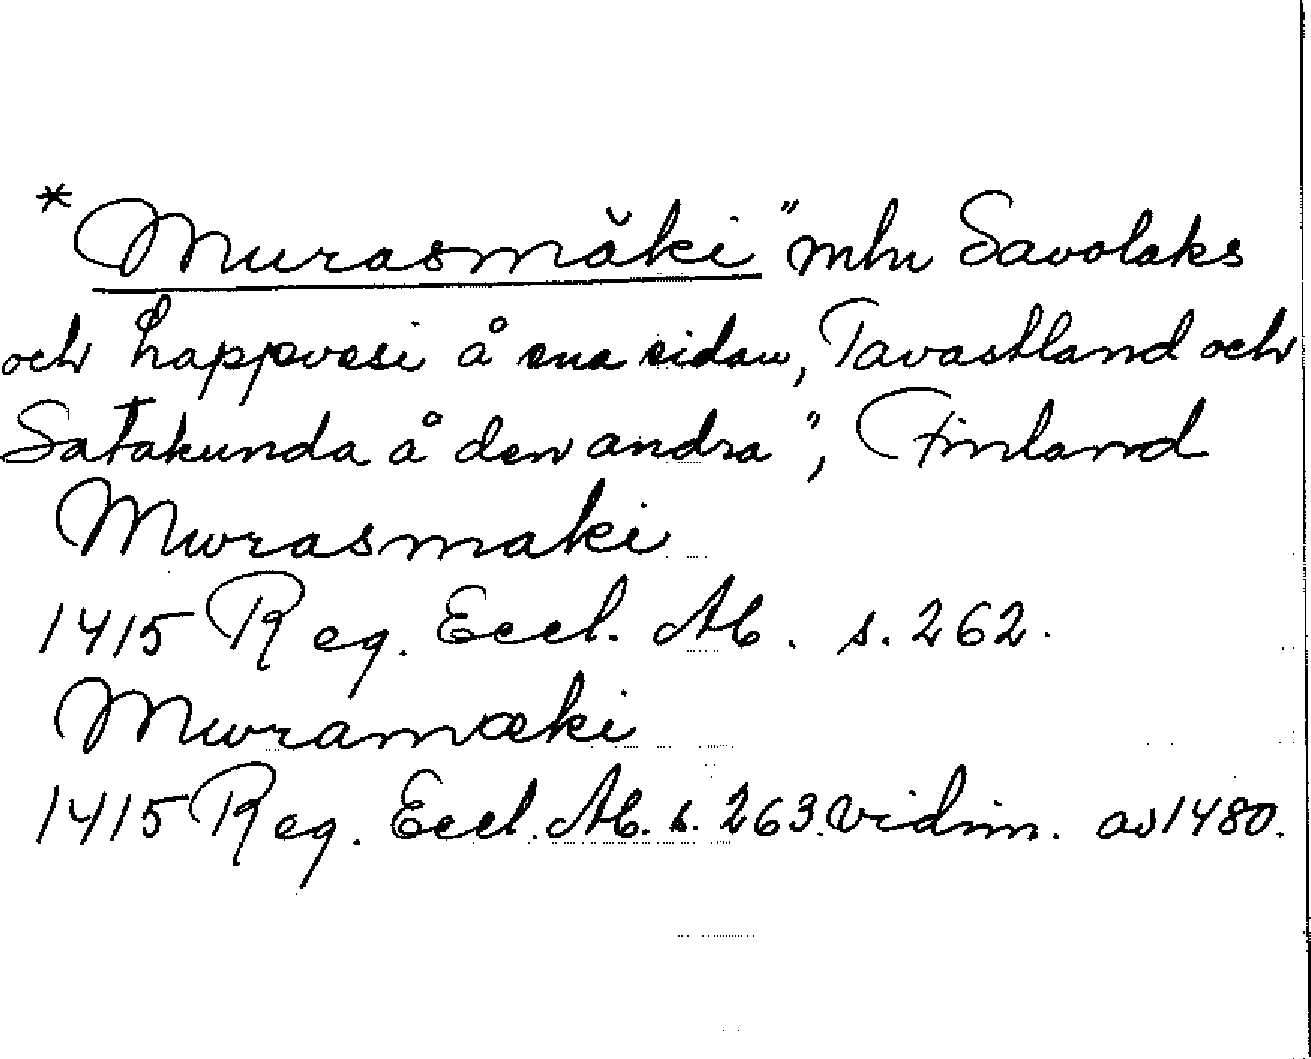 * Murasmäki "mln Savolaks
och Lappvesi å ena sidan, Tavastland och
Satakunda å den andra", Finland
Murasmaki
1415 Reg. Eccl. Ab. s. 262.
Muramæki
1415 Reg. Eccl. Ab. s. 263. vidim. av 1480.